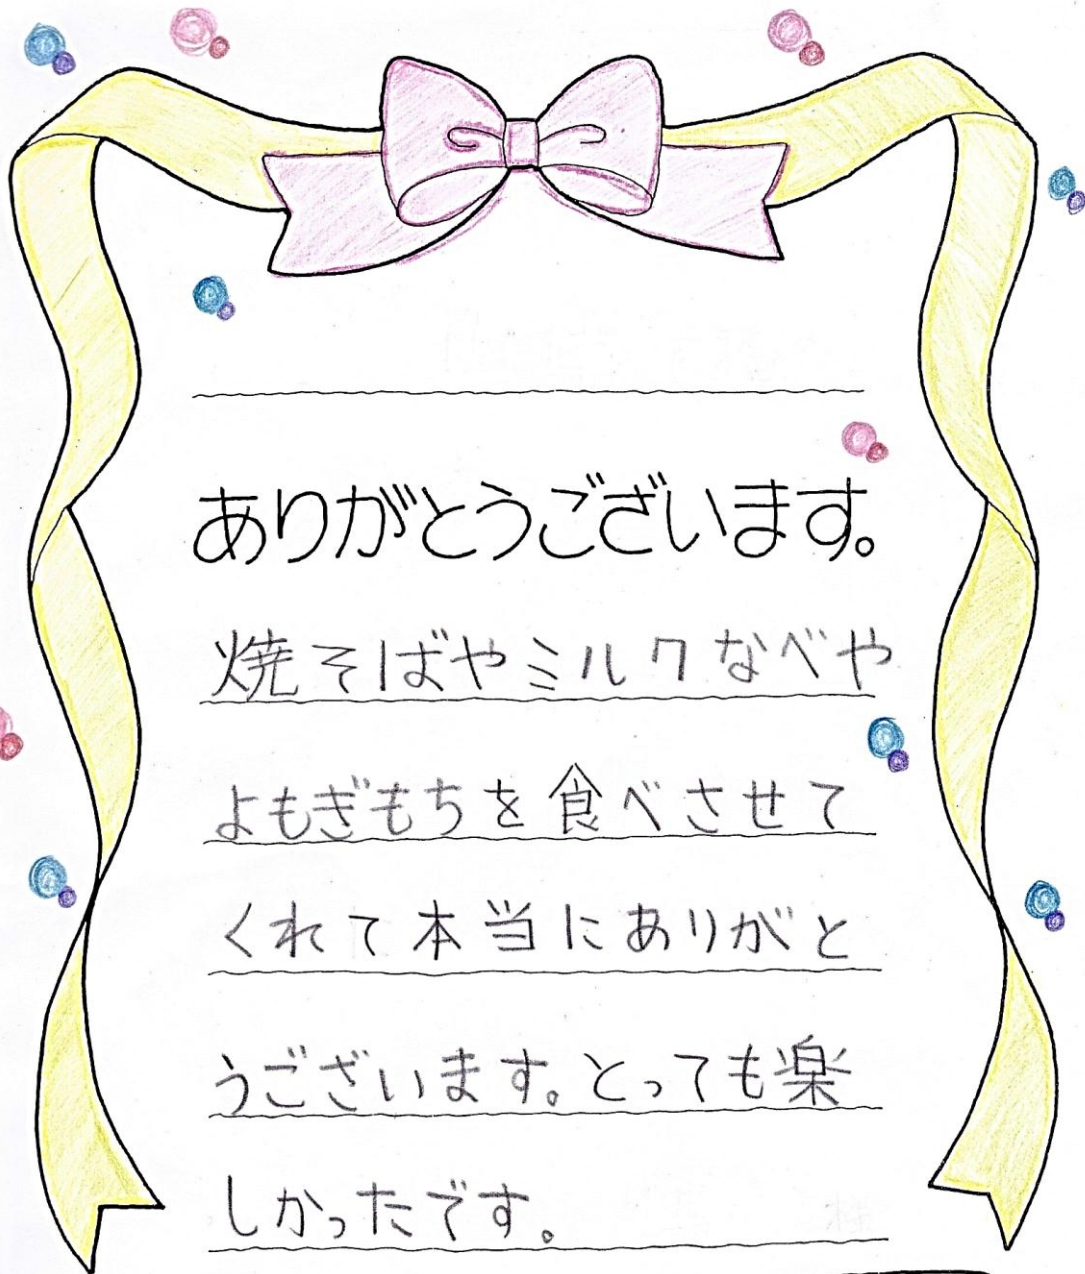 ありがとうございます。
焼そばやミルクなべや
よもぎもちを食べさせて
くれて本当にありがと
うございます。とっても楽
しかったです。